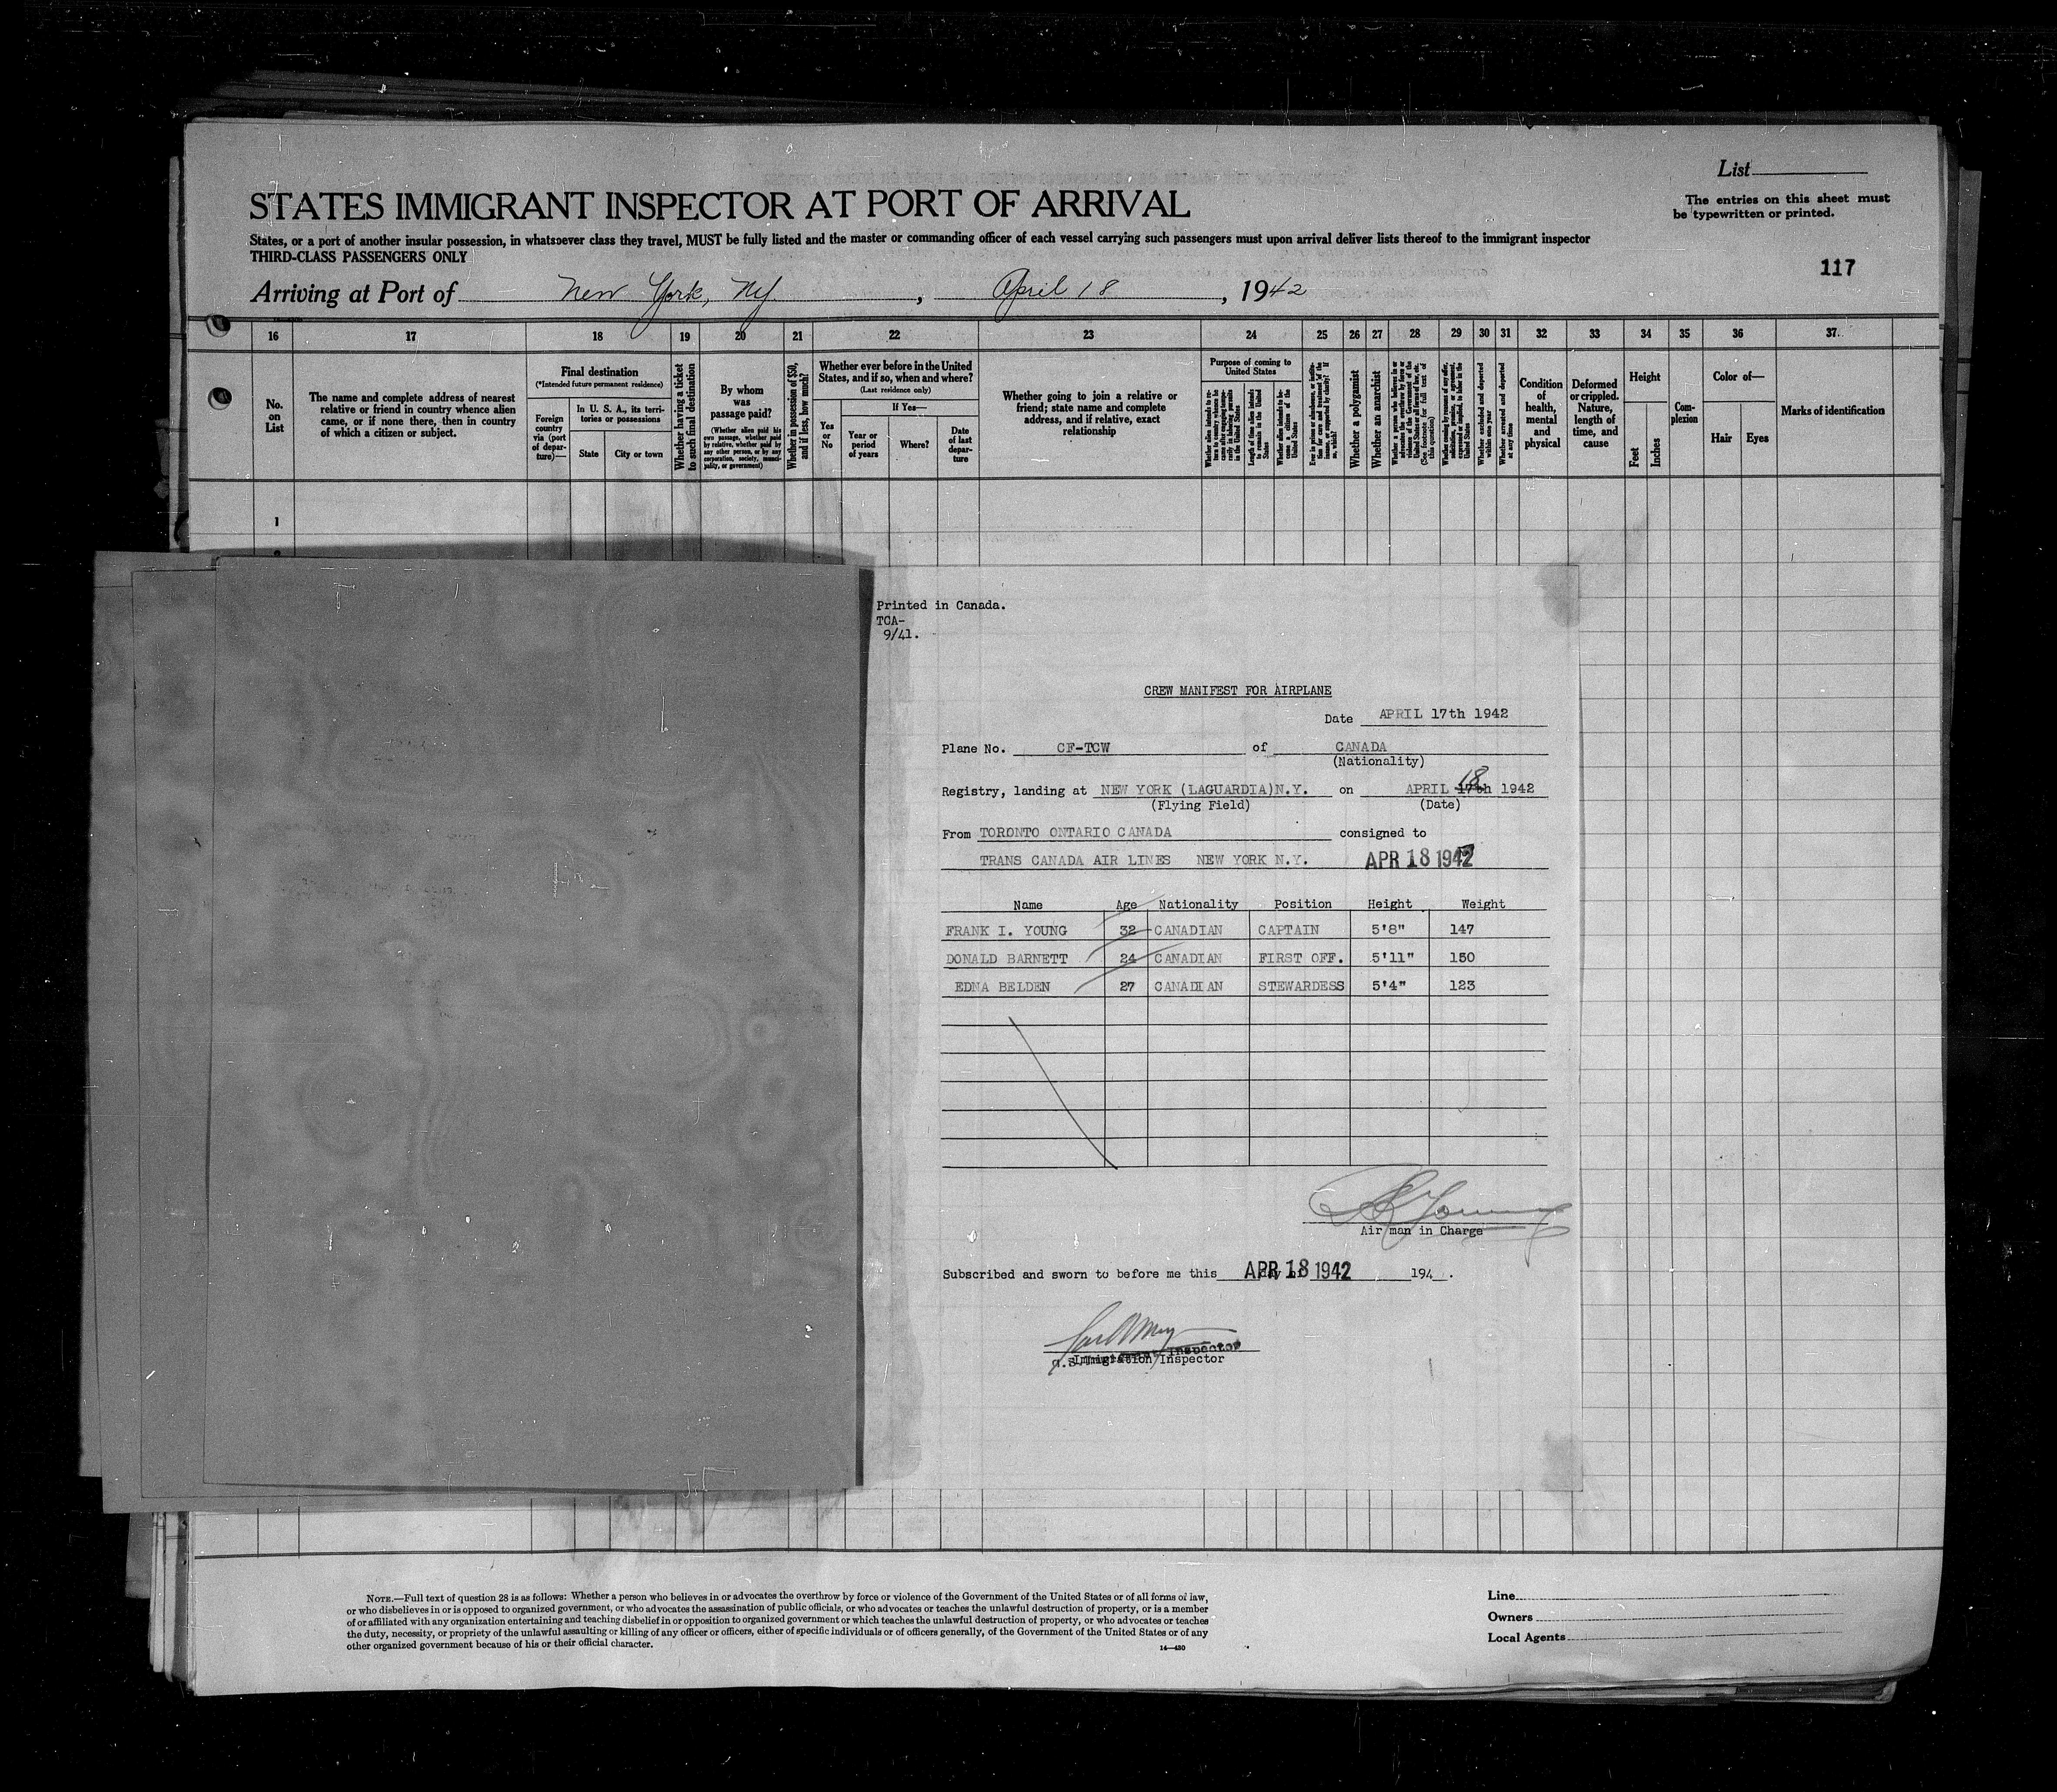 List
STATES IMMIGRANT INSPECTOR AT PORT OF ARRIVAL
The entries on this sheet must
be typewritten or printed.
States, or a port of another insular possession, in whatsoever class they travel, MUST be fully listed and the master or commanding officer of each vessel carrying such passengers must upon arrival deliver lists thereof to the immigrant inspector
THIRD-CLASS PASSENGERS ONLY
117
Arriving at Port of New York, NY. , April 18 , 1942
16 17 18 19 20 21 22 23 24 25 26 27 28 29 30 31 32 33 34 35 36 37.
No.
on
List
The name and complete address of nearest
relative or friend in country whence alien
came, or if none there, then in country
of which a citizen or subject.
Final destination
(*Intended future permanent residence)
Foreign
country
via (port
of depar-
ture)—
In U. S. A., its terri-
tories or possessions
State
City or town
Whether having a ticket
to such final destination
By whom
was
passage paid?
(Whether alien paid his
own passage, whether paid
by relative, whether paid by
any other person, or by any
corporation, society, munici-
pality, or government)
Whether in possession of $50,
and if less, how much?
Whether ever before in the United
States, and if so, when and where?
(Last residence only)
Yes
or
No
If Yes—
Year or
period
of years
Where?
Date
of last
depar-
ture
Whether going to join a relative or
friend; state name and complete
address, and if relative, exact
relationship
Purpose of coming to
United States
Length of time alien intends
to remain in the United
States
Whether a polygamist
Whether an anarchist
Whether excluded and deported
within one year
Whether arrested and deported
at any time
Condition
of
health,
mental
and
physical
Deformed
or crippled.
Nature,
length of
time, and
cause
Height
Feet
Inches
Com-
plexion
Color of—
Hair
Eyes
Marks of identification
1
Printed in Canada.
TCA-
9/41.
CREW MANIFEST FOR AIRPLANE
Date APRIL 17th 1942
Plane No. CF-TCW of CANADA
(Nationality)
18
Registry, landing at NEW YORK (LAGUARDIA)N.Y. on APRIL 17th 1942
(Flying Field) (Date)
From TORONTO ONTARIO CANADA consigned to
TRANS CANADA AIR LINES NEW YORK N.Y. APR 18 1942
Name Age Nationality Position Height Weight
FRANK I. YOUNG 32 CANADIAN CAPTAIN 5'8" 147
DONALD BARNETT 24 CANADIAN FIRST OFF. 5'11" 150
EDNA BELDEN 27 CANADIAN STEWARDESS 5'4" 123
Air man in Charge
Subscribed and sworn to before me this day of APR 18 1942 194 .
Immigration Inspector
NOTE.—Full text of question 28 is as follows: Whether a person who believes in or advocates the overthrow by force or violence of the Government of the United States or of all forms of law,
or who disbelieves in or is opposed to organized government, or who advocates the assassination of public officials, or who advocates or teaches the unlawful destruction of property, or is a member
of or affiliated with any organization entertaining and teaching disbelief in or opposition to organized government or which teaches the unlawful destruction of property, or who advocates or teaches
the duty, necessity, or propriety of the unlawful assaulting or killing of any officer or officers, either of specific individuals or of officers generally, of the Government of the United States or of any
other organized government because of his or their official character.
14—430
Line
Owners
Local Agents